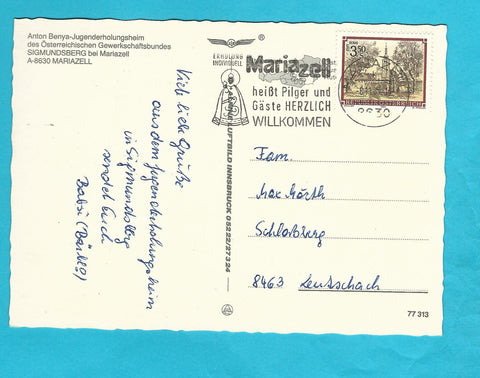 Anton Benya-Jugenderholungsheim
des Österreichischen Gewerkschaftsbundes
SIGMUNDSBERG bei Mariazell
A-8630 MARIAZELL
Viele liebe Grüße
aus dem Jugenderholungsheim
in Sigmundsberg
sendet Euch
Babsi
ERHOLUNG
INDIVIDUELL
Mariazell
heißt Pilger und
Gäste HERZLICH
WILLKOMMEN
8630
3.50
REPUBLIK ÖSTERREICH
LUFTBILD INNSBRUCK 05222/27324
Fam.
Max
Schloßberg
8463 Leutschach
77 313